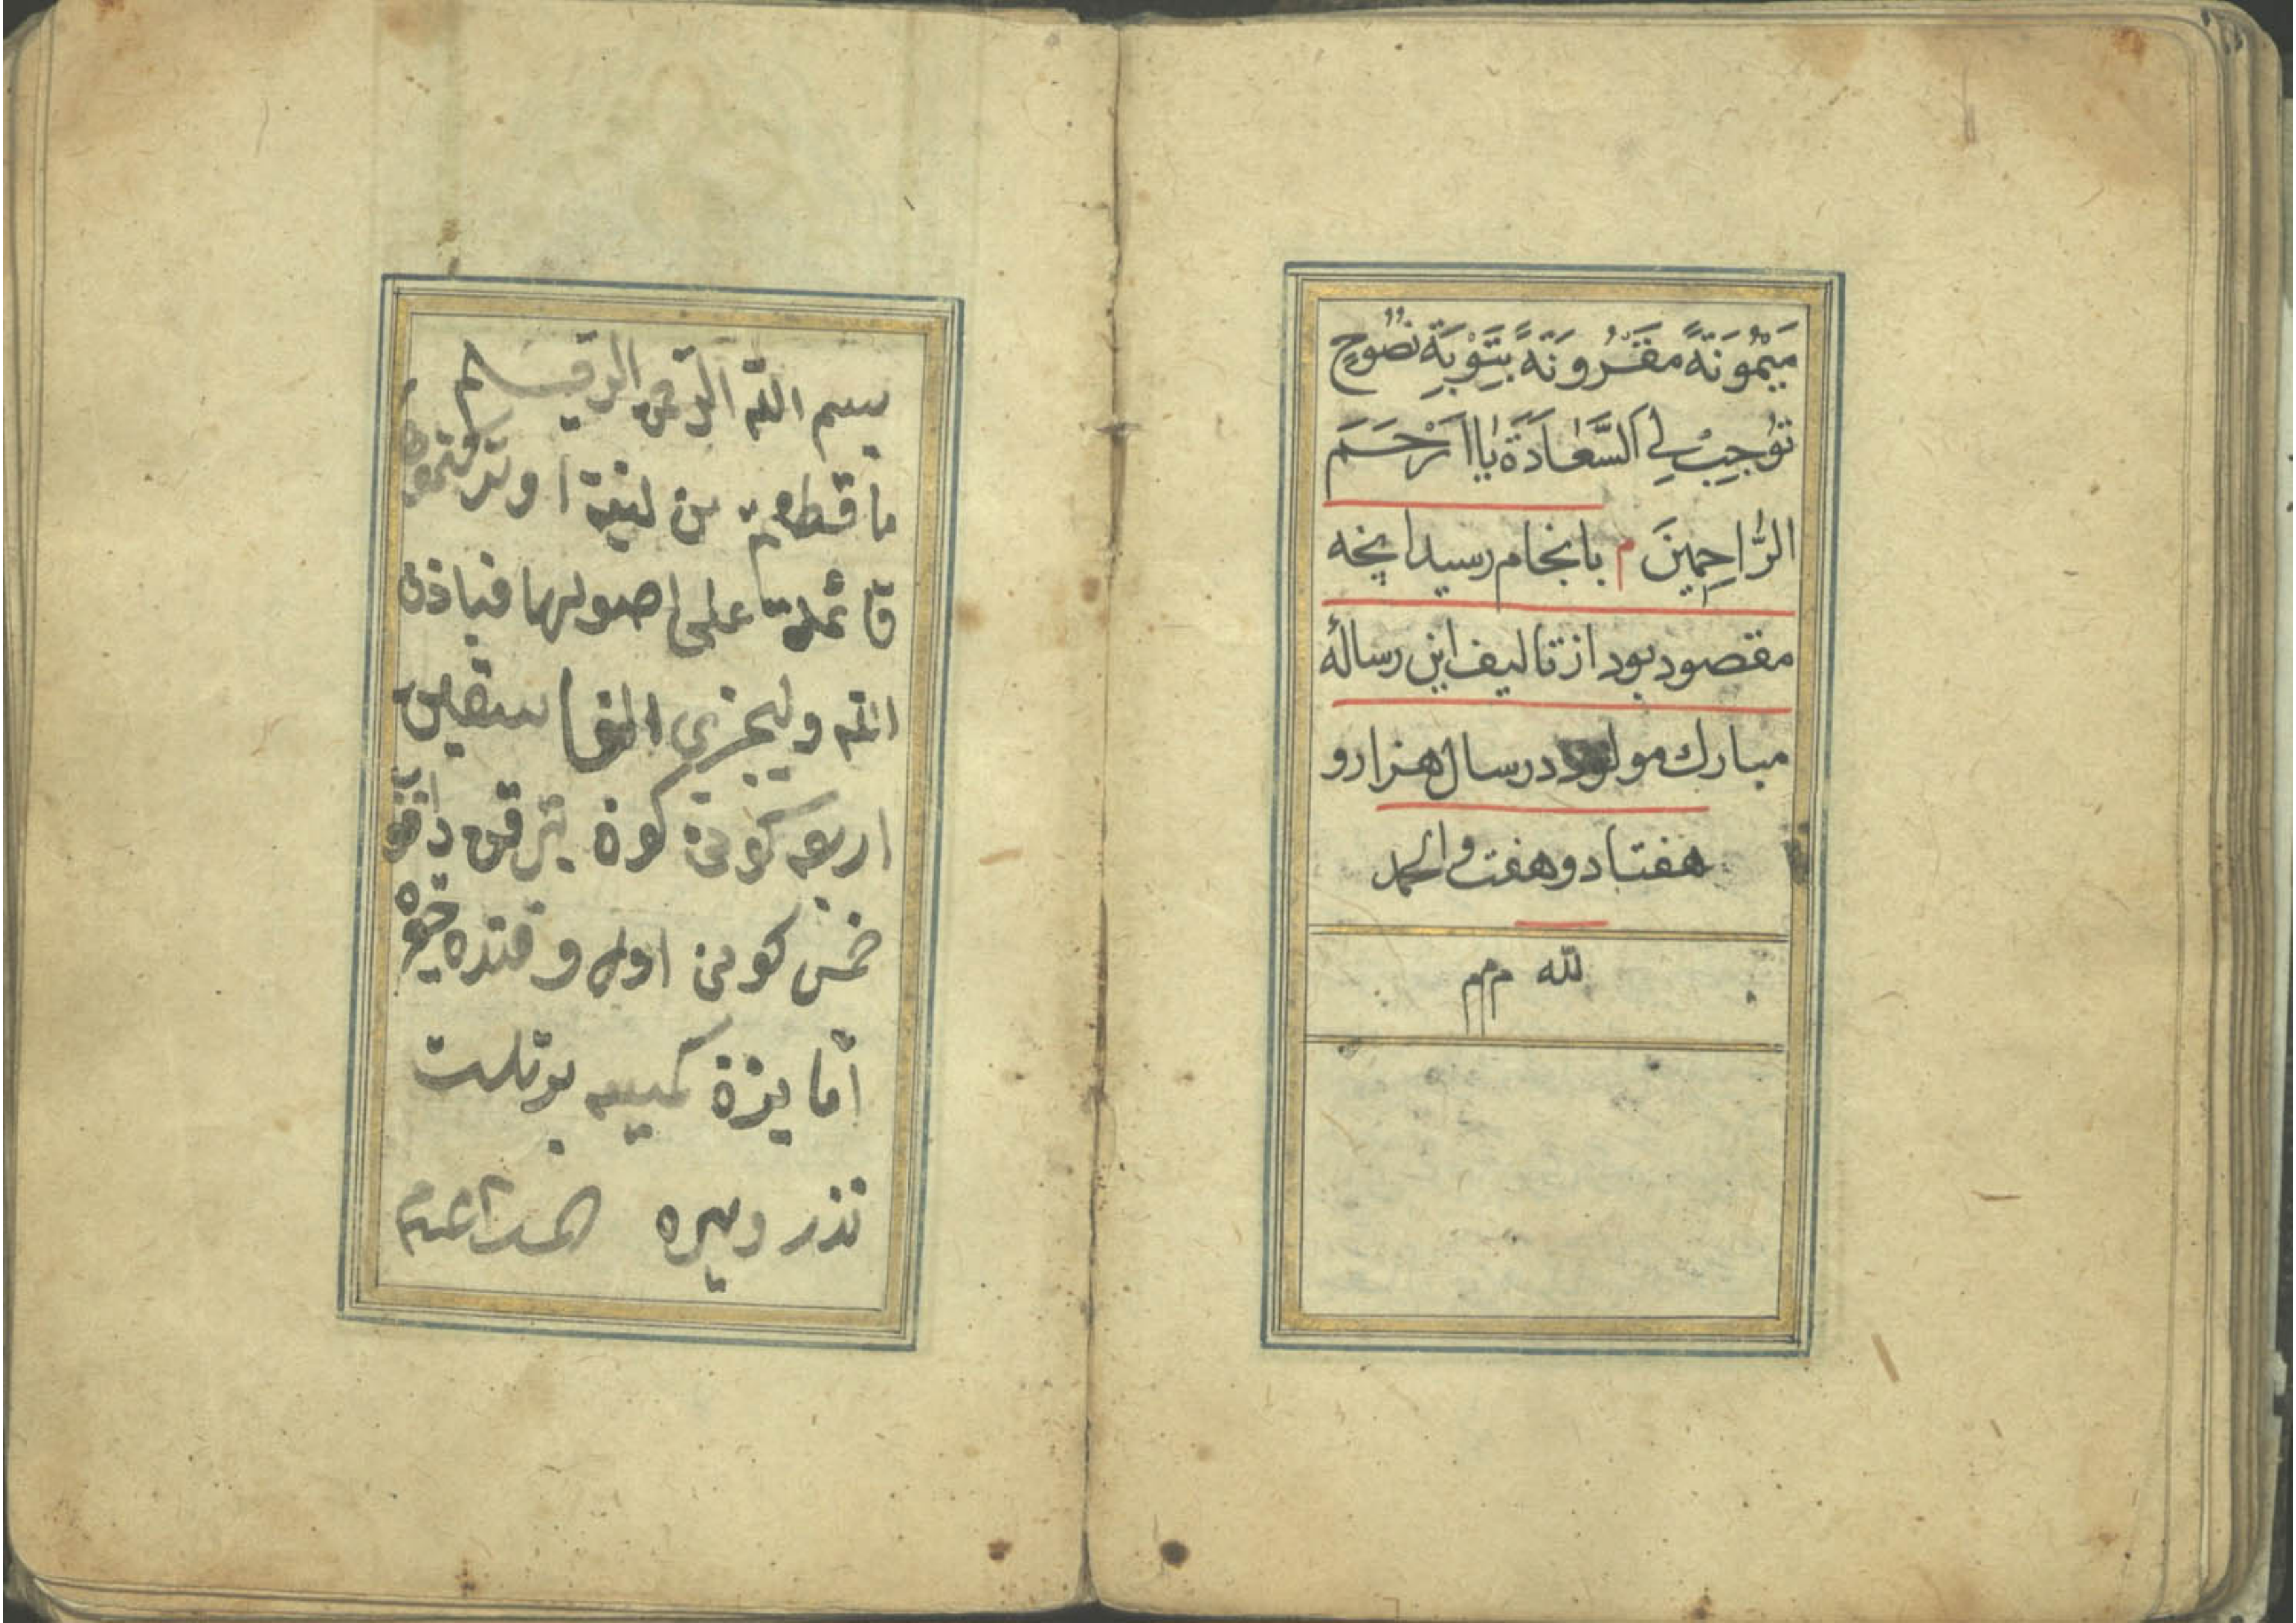 مَيْمُونَةً مَقْرُونَةً بِتَوْبَةٍ نَصُوحٍ
تُوجِبُ لِي السَّعَادَةَ يَا اَرْحَمَ
الرَّاحِمِينَ م بانجام رسید انچه
مقصود بود از تالیف این رسالهٔ
مبارك مولود در سال هزار و
هفتاد و هفت والحمد
لله ممم
بسم الله الرحمن الرحيم
ما قطعتم من لينة او تركتموها
قائمة على اصولها فباذن
الله وليخزي الفاسقين
اربعه كونى كوة
خمس كونى اول
اما يزة كيسه
نذر ويره